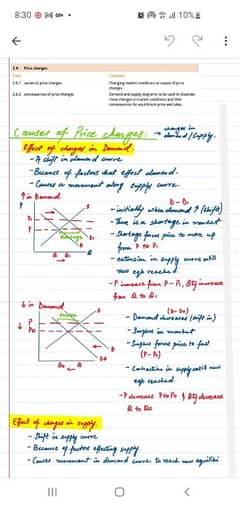 8:30
10%
2.6 Price changes
2.6.1 causes of price changes
Changing market conditions as causes of price
changes.
2.6.2 consequences of price changes
Demand and supply diagrams to be used to illustrate
these changes in market conditions and their
consequences for equilibrium price and sales.
Causes of Price changes: → changes in
demand/supply.
Effect of changes in Demand
- A shift in demand curve
- Because of factors that effect demand.
- Causes a movement along supply curve.
↑ in Demand
D - D₁
- initially when demand ↑ (shift)
- There is a shortage in market
- Shortage forces price to move up
from P to P₁
- extension in supply curve until
new eqb reached.
- P increase from P - P₁, Qty increase
from Q to Q₁
P
P₁
P
S
D
D₁
shortage
Q Q₁
↓ in Demand
(D - D₀)
- Demand decreased (shift in)
- Surplus in market
- Surplus forces price to fall
(P - P₀)
- Contraction in supply until new
eqb reached.
- P decrease P to P₀ & Qty decrease
Q to Q₀
P
P₀
S
D
D₀
Q₀ Q
Effect of changes in supply.
- Shift in supply curve
- Because of factors effecting supply
- Causes movement in demand curve to reach new